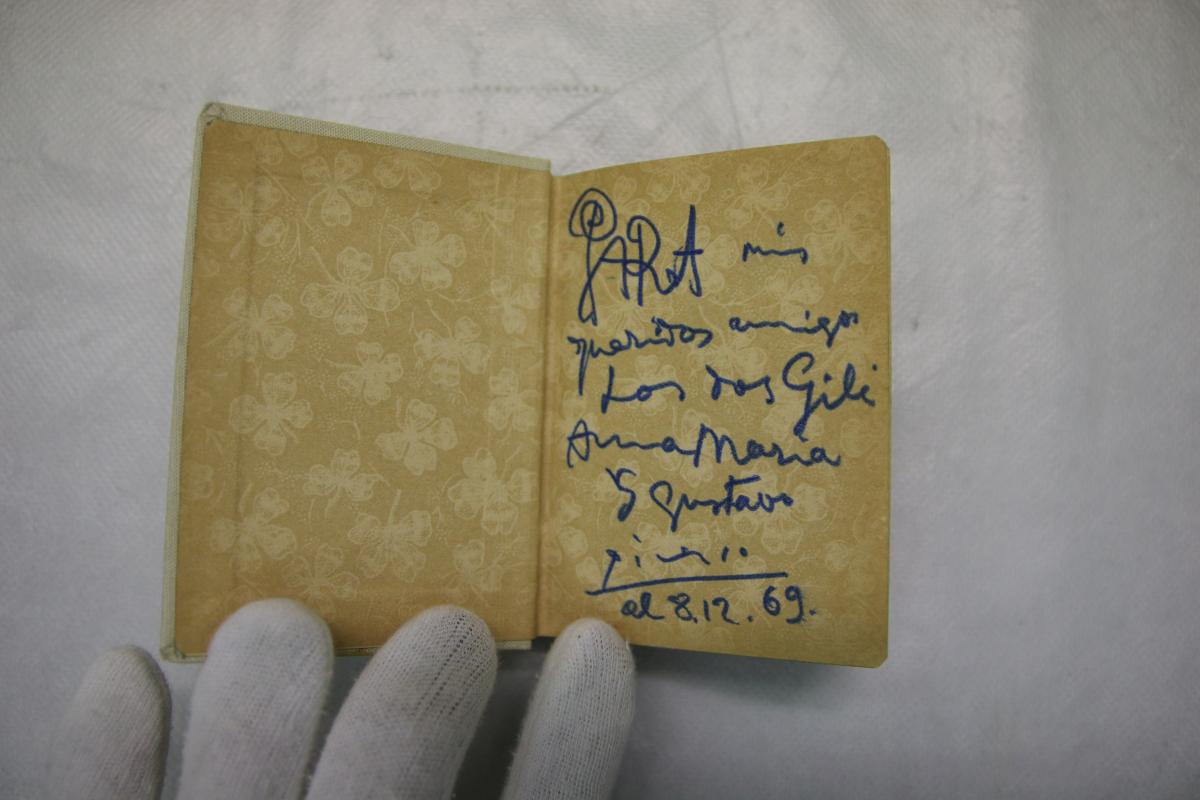 PARA mis
queridos amigos
Los dos Gili
Anna Maria
Y Gustavo
Picasso
el 8.12.69.